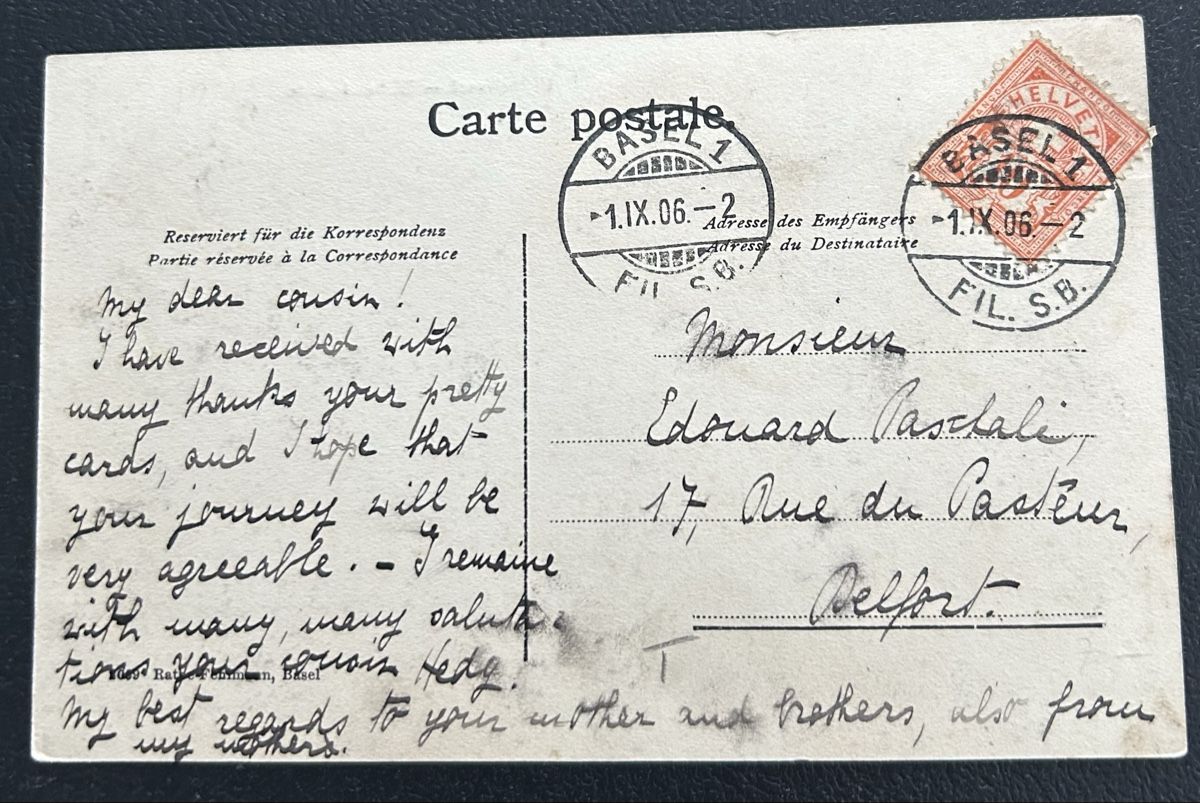 Carte postale.
HELVET
BASEL 1
1.IX.06.-2
FIL. S.B.
BASEL 1
1.IX.06.-2
FIL. S.B.
Reserviert für die Korrespondenz
Partie réservée à la Correspondance
Adresse des Empfängers
Adresse du Destinataire
My dear cousin!
I have received with
many thanks your pretty
cards, and I hope that
your journey will be
very agreeable. - I remaine
with many, many saluta-
tions your cousin Hedy.
My best regards to your mother and brothers, also from
my mothers.
Monsieur
Edouard Paschali,
17, Rue du Pastêur,
Belfort.
T
Basel